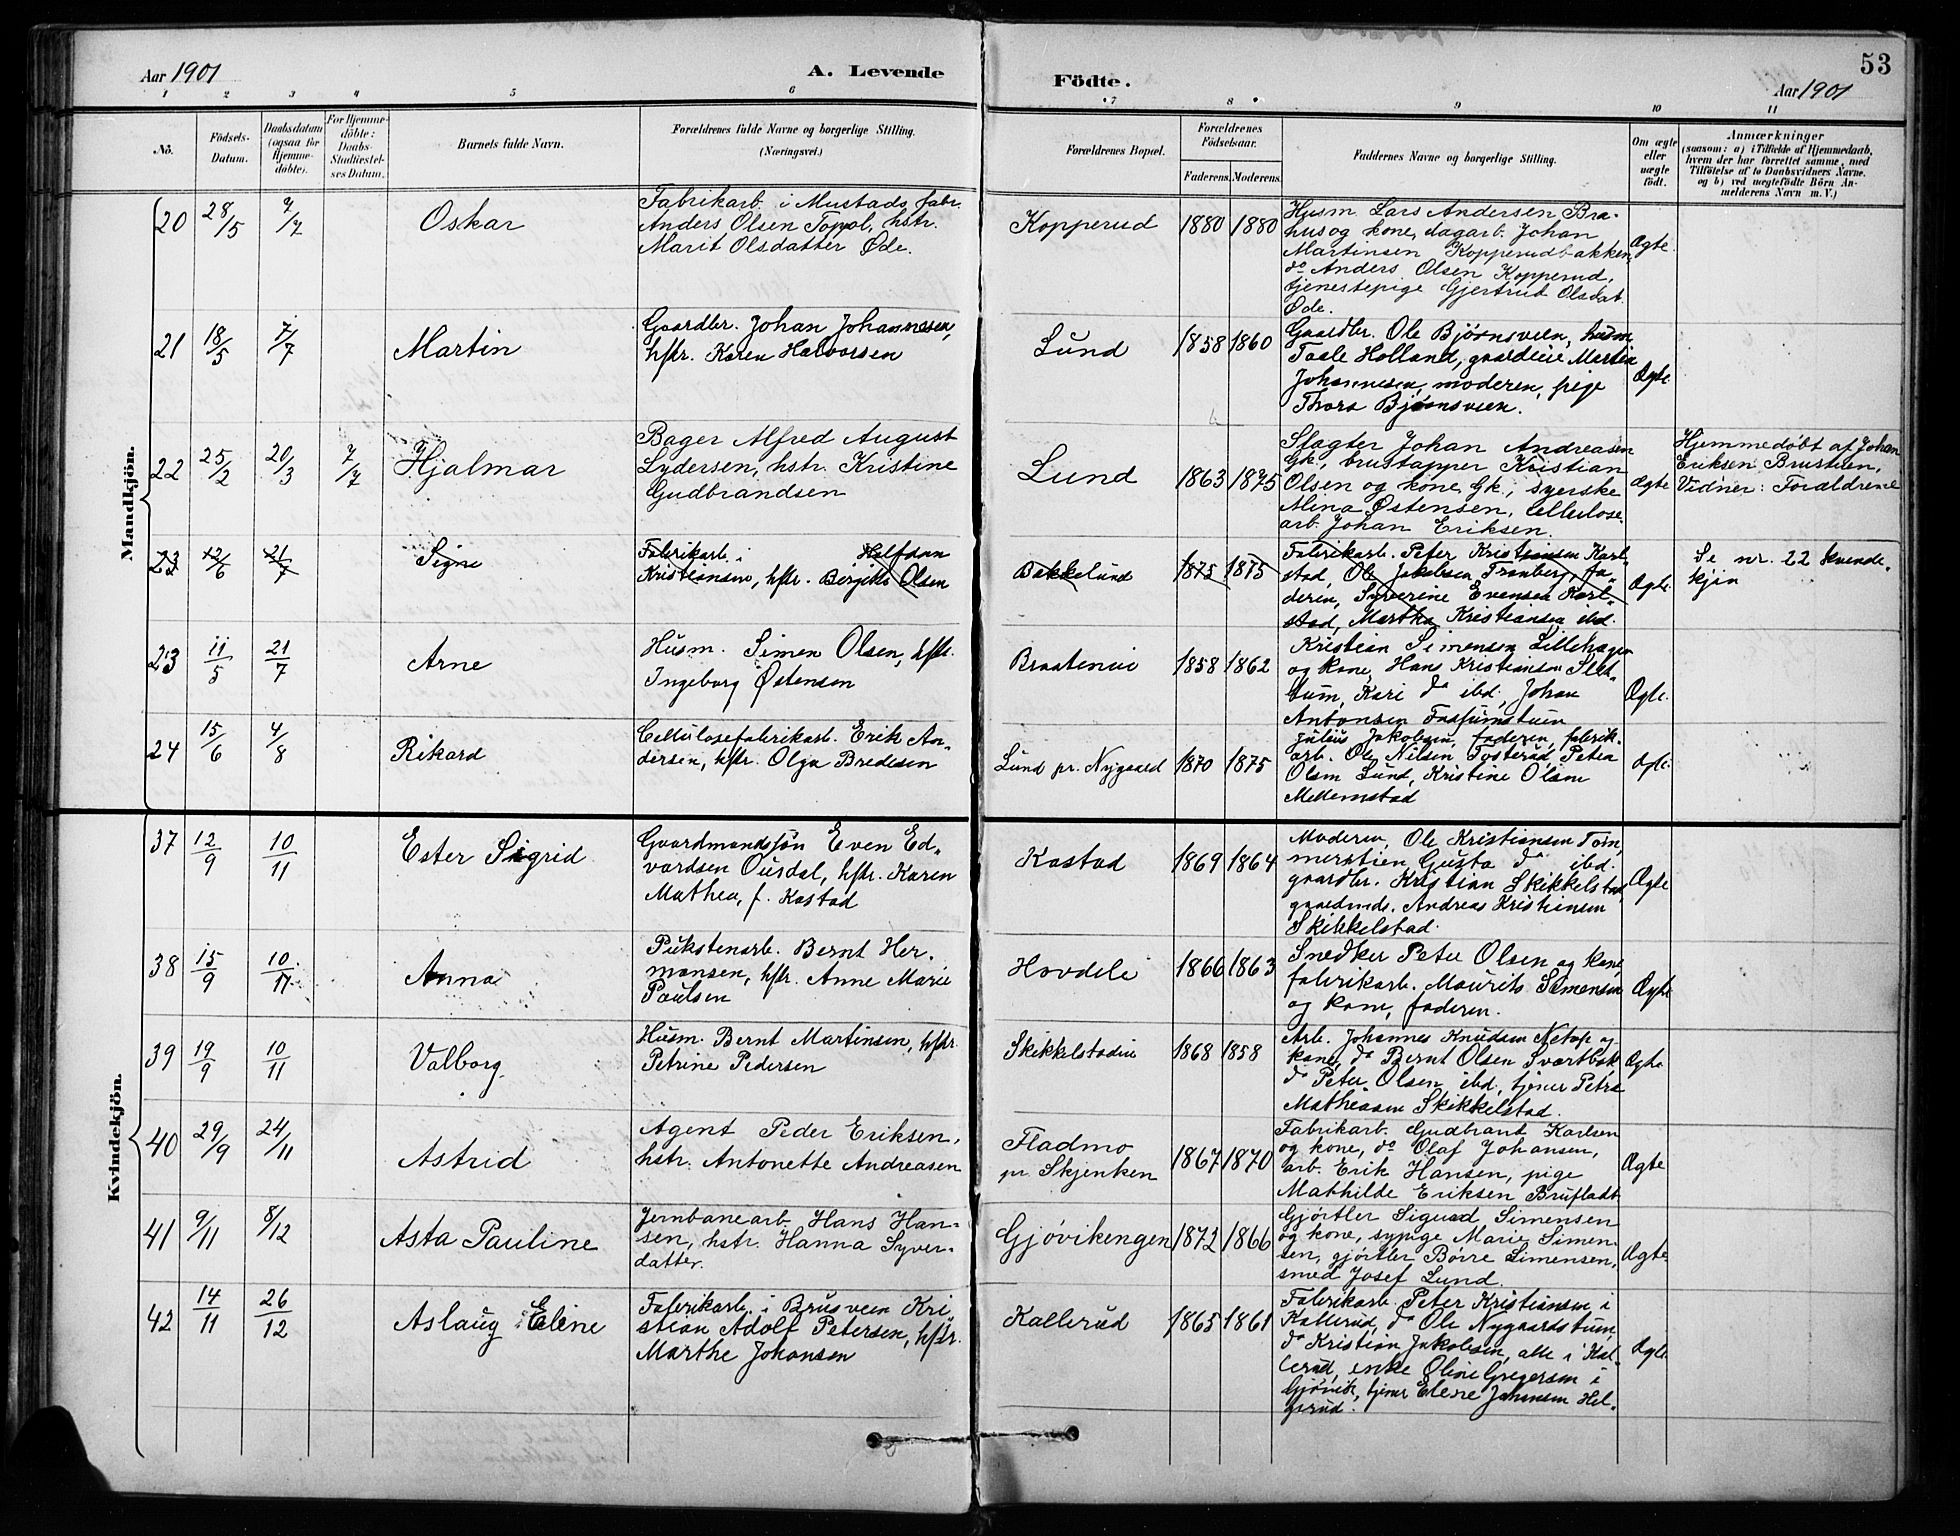 Aar 1901
A. Levende
Födte.
53
Aar 1901
1 2 3 4 5 6 7 8 9 10 11
No.
Födsels-
Datum.
Daabsdatum
(ogsaa for
Hjemme-
döbte).
For Hjemme-
döbte:
Daabs-
Stadfæstel-
ses Datum.
Barnets fulde Navn.
Forældrenes fulde Navne og borgerlige Stilling.
(Næringsvei.)
Forældrenes Bopæl.
Forældrenes
Födselsaar.
Faderens.
Moderens.
Faddernes Navne og borgerlige Stilling.
Om ægte
eller
uægte
födt.
Anmærkninger
(saasom: a) i Tilfælde af Hjemmedaab,
hvem der har forrettet samme, med
Tilföielse af to Daabsvidners Navne.
og b) ved uægtefödte Börn An-
melderens Navn m. V.)
Mandkjön.
20
28/5
7/7
Oskar
Fabrikarb. i Mustads fabr.
Anders Olsen Toppol, hstr.
Marit Olsdatter Øde.
Kopperud
1880
1880
Husm. Lars Andersen Bra-
hus og kone, dagarb. Johan
Martinsen Kopperudbakken,
do Anders Olsen Kopperud,
tjenestepige Gjertrud Olsdat.
Øde.
Ægte
21
18/5
7/7
Martin
Gaardbr. Johan Johannesen,
hstr. Karen Halvorsen
Lund
1858
1860
Gaardbr. Ole Bjørnsveen, husm.
Taale Holland, gaardeier Martin
Johannesen, moderen, pige
Thora Bjørnsveen.
Ægte
22
25/2
20/3
7/7
Hjalmar
Bager Alfred August
Lydersen, hstr. Kristine
Gudbrandsen
Lund
1863
1875
Slagter Johan Andreasen
Gk., brustapper Kristian
Olsen og kone Gk., syerske
Alina Østensen, Cellulose-
arb. Johan Eriksen.
Ægte
Hjemmedøbt af Johan
Eriksen Brustuen,
Vidner: Forældrene
23
12/6
21/7
Signe
Fabrikarb. i Halfdan
Kristiansen, hstr. Birgitte Olsen
Bakkelund
1875
1875
Fabrikarb. Peter Kristiansen Karl-
stad, Ole Jakobsen Tranberg, fa-
deren, Syverine Evensen Karl-
stad, Martha Kristiansen ibd.
Ægte
Se nr. 22 kvinde-
kjøn
23
11/5
21/7
Arne
Husm. Simen Olsen, hstr.
Ingeborg Østensen
Braateneie
1858
1862
Kristian Simensen Lillehagen
og kone, Hans Kristiansen Slet-
tum, Kari do ibd., Johan
Antonsen
Ægte.
24
15/6
4/8
Rikard
Cellulosefabrikarb. Erik An-
dersen, hstr. Olga Bredesen
Lund pr. Nygaard
1870
1875
Julius Jakobsen, faderen, fabrik-
arb. Ole Nilsen Fosterud, Petra
Olsen Lund, Kristine Olsen
Mellemstad
Ægte.
Kvindekjön.
37
12/9
10/11
Ester Sigrid
Gaardmandssøn Even Ed-
vardsen Ousdal, hstr. Karen
Mathea, f. Kastad
Kastad
1869
1864
Moderen, Ole Kristiansen Tom-
merstien Gusta do ibd.
gaardbr. Kristian Skikkelstad,
gaardmds. Andreas Kristiansen
Skikkelstad.
Ægte
38
15/9
10/11
Anna
Pukstenarb. Bernt Her-
mansen, hstr. Anne Marie
Paulsen
Hovdeli
1866
1863
Snedker Peter Olsen og kone,
fabrikarb. Maurits Simensen
og kone, faderen.
Ægte
39
19/9
10/11
Valborg.
Husm. Bernt Martinsen, hstr.
Petrine Pedersen
Skikkelstadeie
1868
1858
Arb. Johannes Knudsen og
kone, do Bernt Olsen Svartbæk
do Peter Olsen ibd, tjener Petra
Matheasen Skikkelstad.
Ægte
40
29/9
24/11
Astrid
Agent Peder Eriksen,
hstr. Antonette Andreasen
Fladmo
pr. Skjenken
1867
1870
Fabrikarb. Gudbrand Karlsen
og kone, do Olaf Johansen,
arb. Erik Hansen, pige
Mathilde Eriksen Brufladt
Ægte
41
9/11
8/12
Asta Pauline
Jernbanearb. Hans Han-
sen, hstr. Hanna Syver-
datter.
Gjøvikengen
1872
1866
Gjørtler Sigurd Simensen
og kone, sypige Marie Simen-
sen, gjørtler Børre Simensen,
smed Josef Lund.
Ægte
42
14/11
26/12
Aslaug Eline
Fabrikarb. i Brusveen Kri-
stian Adolf Petersen, hstr.
Marthe Johansen
Kallerud
1865
1861
Fabrikarb. Peter Kristiansen i
Kallerud, do Ole Nygaardstuen,
do Kristian Jakobsen, alle i Kal-
lerud, enke Oline Gregersen i
Gjøvik, tjener Elene Johansen Hel-
gerud.
Ægte